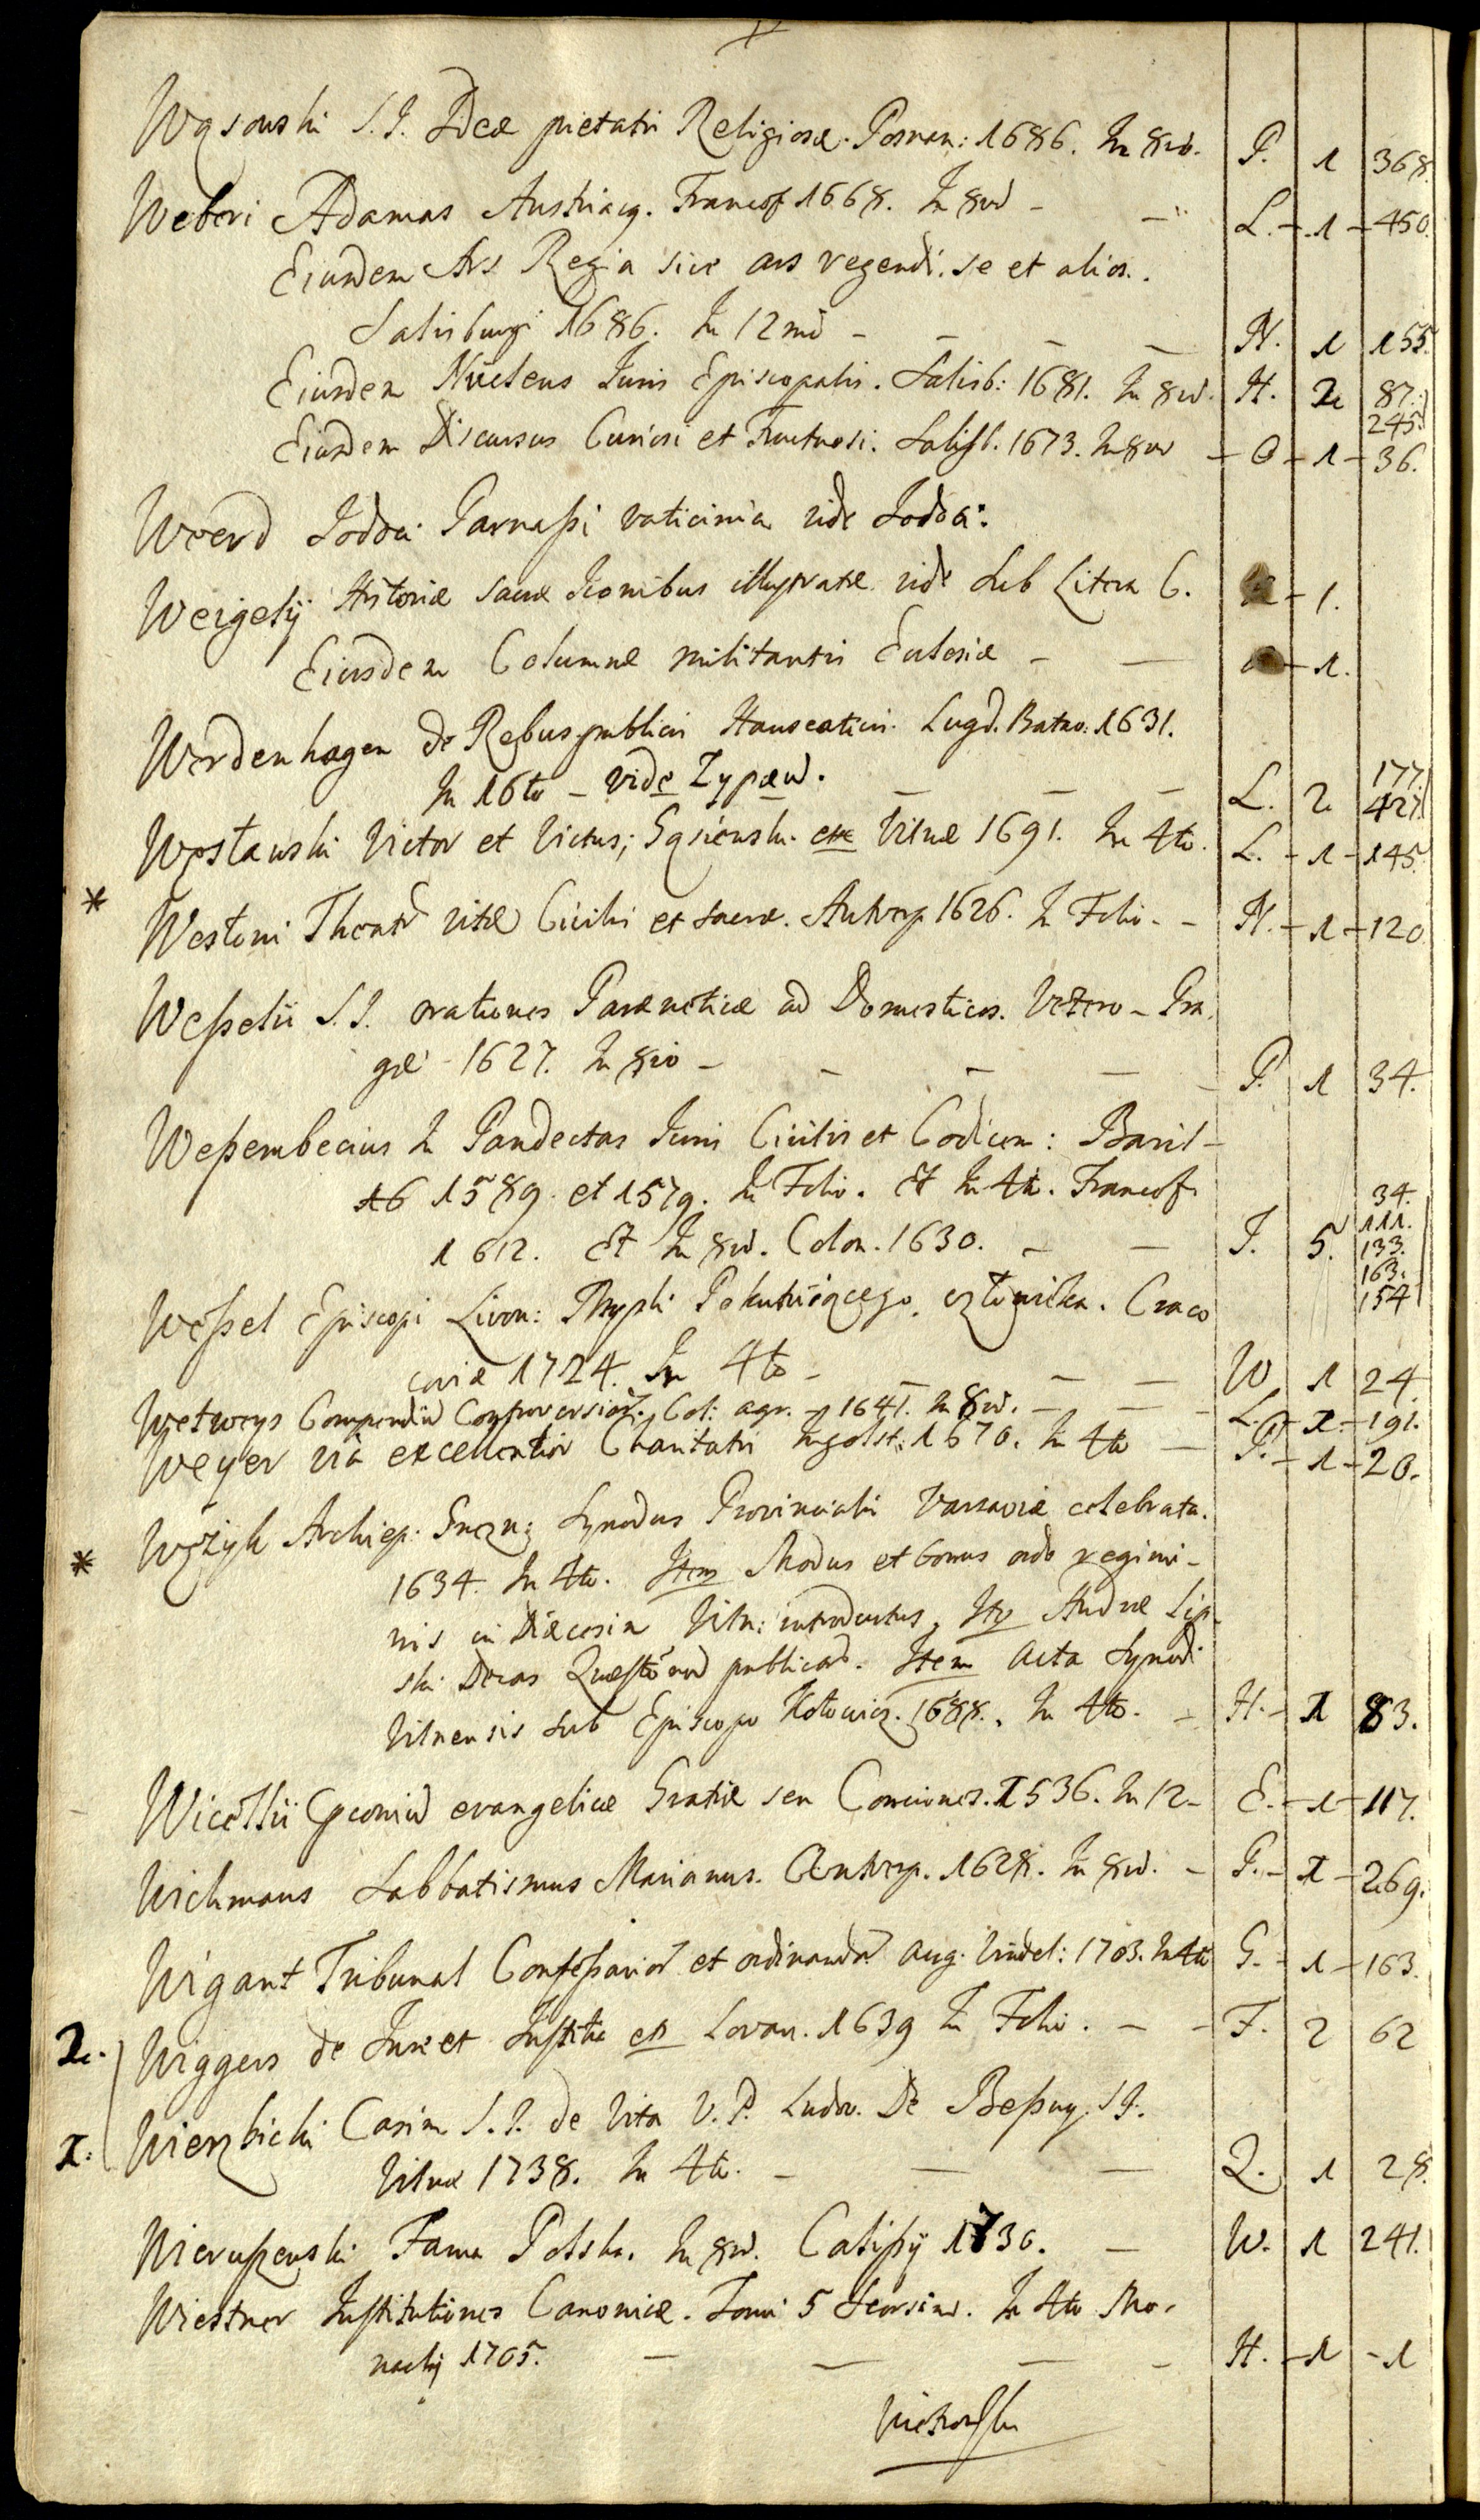 Wąsowski S.J. Ideæ pietatis Religiosæ. Posnan: 1686. In 8vo. P. 1 368.
Weberi Adamas Austriacq. Francof 1668. In 8vo - - L. - 1 - 450.
Eiusdem Ars Regia sive ars regendi se et alios.
Salisburgi 1686. In 12mo - - - - N. 1 155.
Eiusdem Nucleus Iuris Episcopalis. Salisb: 1681. In 8vo. H. 2 87. 245.
Eiusdem Discursus Curiosi et Fructuosi. Salisb. 1673. In 8vo - O - 1 - 36.
Weerd Jodoci Parnaßi vaticinia vide Jodoci.
Weigelij Historiæ sacræ Iconibus illustratæ vide Sub Litera C. - 1.
Eiusdem Columnæ militantis Ecclesiæ - - - 1.
Werdenhagen de Rebuspublicis Hanseaticis. Lugd. Batav: 1631.
In 16to - vide Zypæus. - - - L. 2 177. 427.
Wesławski Victor et Victus; Gąsiewski. Vilnæ 1691. In 4to. L. - 1 - 145.
* Westoni Theatr vitæ Civilis et sacræ. Antverp 1626. In Folio - - N. - 1 - 120
Weßelii S.J. orationes Paræneticæ ad Domesticos. Vetero-Pra.
gæ 1627. In 8vo - - - - - P. 1 34.
Weßembecius In Pandectas Iuris Civilis et Codicem: Basil-
1589. et 1579. In Folio. Et In 4to. Francof.
1612. Et In 8vo. Colon. 1630. - - I. 5. 34. 111. 133. 163. 154
Weßel Episcopi Livon: Pokutuiącego człowieka. Craco
coviæ 1724. In 4to - - - - W 1 24.
Wetweys Compendiũ Controversiar. Col: agr. - 1641. In 8vo. - - - L. - 1. - 191.
Weyer via excellentior Charitatis Ingolst: 1670. In 4to - P. - 1 - 20.
* Wężyk Archiep. Gnezn: Synodus Provincialis Varsaviæ celebrata.
1634. In 4to. Item Modus et bonus ordo regimi-
nis in Diæcesin Viln: introductus. Itẽ Andreæ Lip-
ski Decas Quæstionũ publicarũ. Item Acta Synodi
Vilnensis sub Episcopo Kotowicz. 1688. In 4to. - H. - 1 83.
Wicellii evangelicæ Gratiæ seu Conciones. 1536. In 12 - E. - 1 - 117.
Wichmans Sabbatismus Marianus. Antverp. 1628. In 8vo. - P. - 1 - 269.
Wigant Tribunal Confeßarior et ordinandor Aug. Vindel: 1703. In 4to G. - 1 - 163.
2. Wiggers de Iure et Iustitia Lovan. 1639 In Folio. - - F. 2 62
1. Wierzbicki Casim S.J. de Vita V.P. Ludov. De Beßuy. SJ.
Vilnæ 1738. In 4to. - - - Q. 1 28.
Wieruszewski Fama Polska. In 8vo. Calißij 1730. - W. 1 241.
Wiestner Institutiones Canonicæ. Tomi 5 seorsim. In 4to Mo-
nachij 1705. - - - - H. - 1 - 1